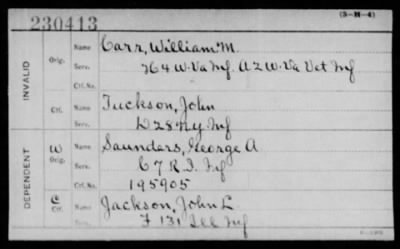 (3-H-4)
230413
INVALID
Orig.
Name Carr, William M.
Serv. H 4 W.Va Inf. A 2 W.Va Vet Inf
Ctf. No.
Ctf.
Name Tuckson, John
Serv. D 28 Ky Inf
DEPENDENT
W
Orig.
Name Saunders, George A
Serv. C 7 R.I. Inf
Ctf. No. 195905
C
Ctf.
Name Jackson, John L
Serv. F 131 Ill Inf